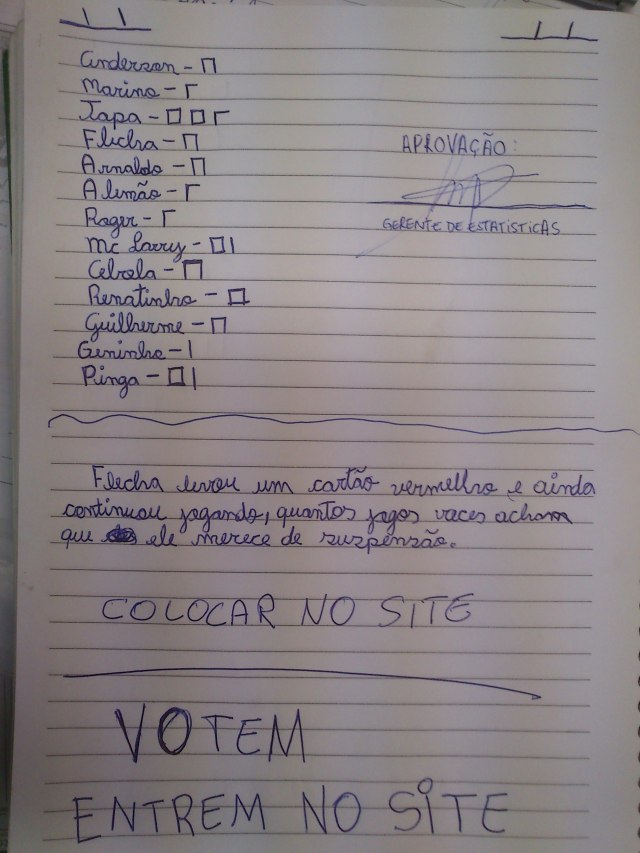 Anderson -
Marino -
Japa -
Flecha -
Arnaldo -
Alemão -
Roger -
Mc Larry -
Cebola -
Renatinho -
Guilherme -
Geninho -
Pinga -
APROVAÇÃO:
GERENTE DE ESTATISTICAS
Flecha levou um cartão vermelho e ainda
continuou jogando, quantos jogos voces acham
que ele merece de suspensão.
COLOCAR NO SITE
VOTEM
ENTREM NO SITE